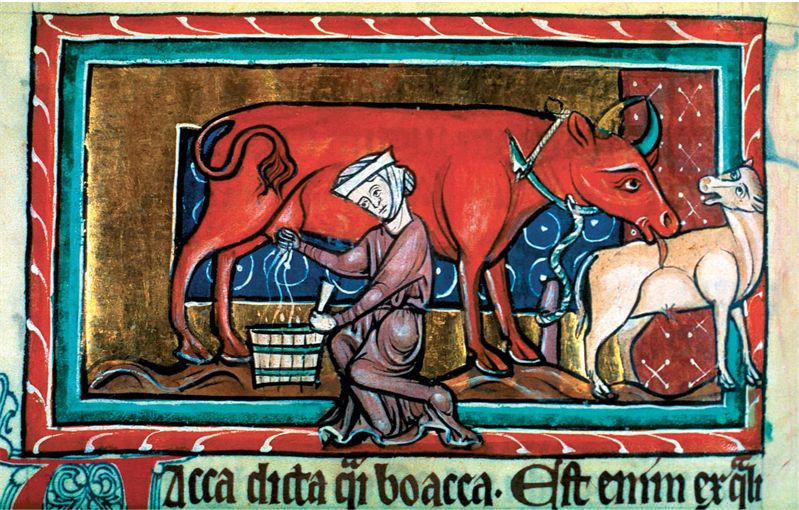 VAcca dicta q̄i boacca. Est enim ex q̄li